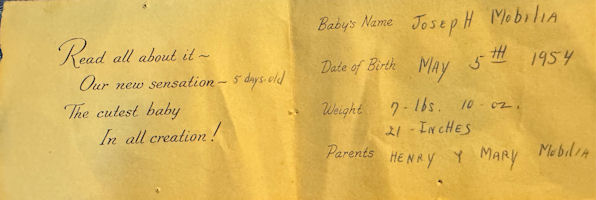 Read all about it ~
Our new sensation ~ 5 days old
The cutest baby
In all creation!
Baby's Name Joseph Mobilia
Date of Birth May 5th 1954
Weight 7-lbs. 10-oz.
21-Inches
Parents Henry Y Mary Mobilia